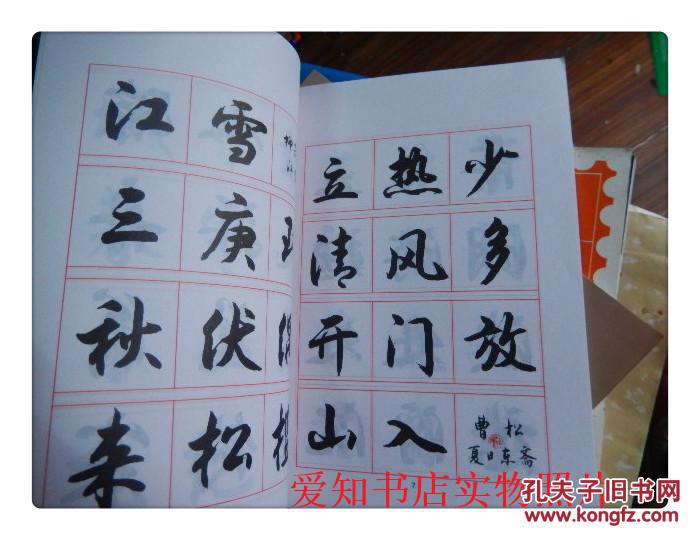 江雪
三庚
秋伏
来松
立热少
清风多
开门放
山入
曹松
夏日东斋
爱知书店实物
孔夫子旧书网
www.kongfz.com